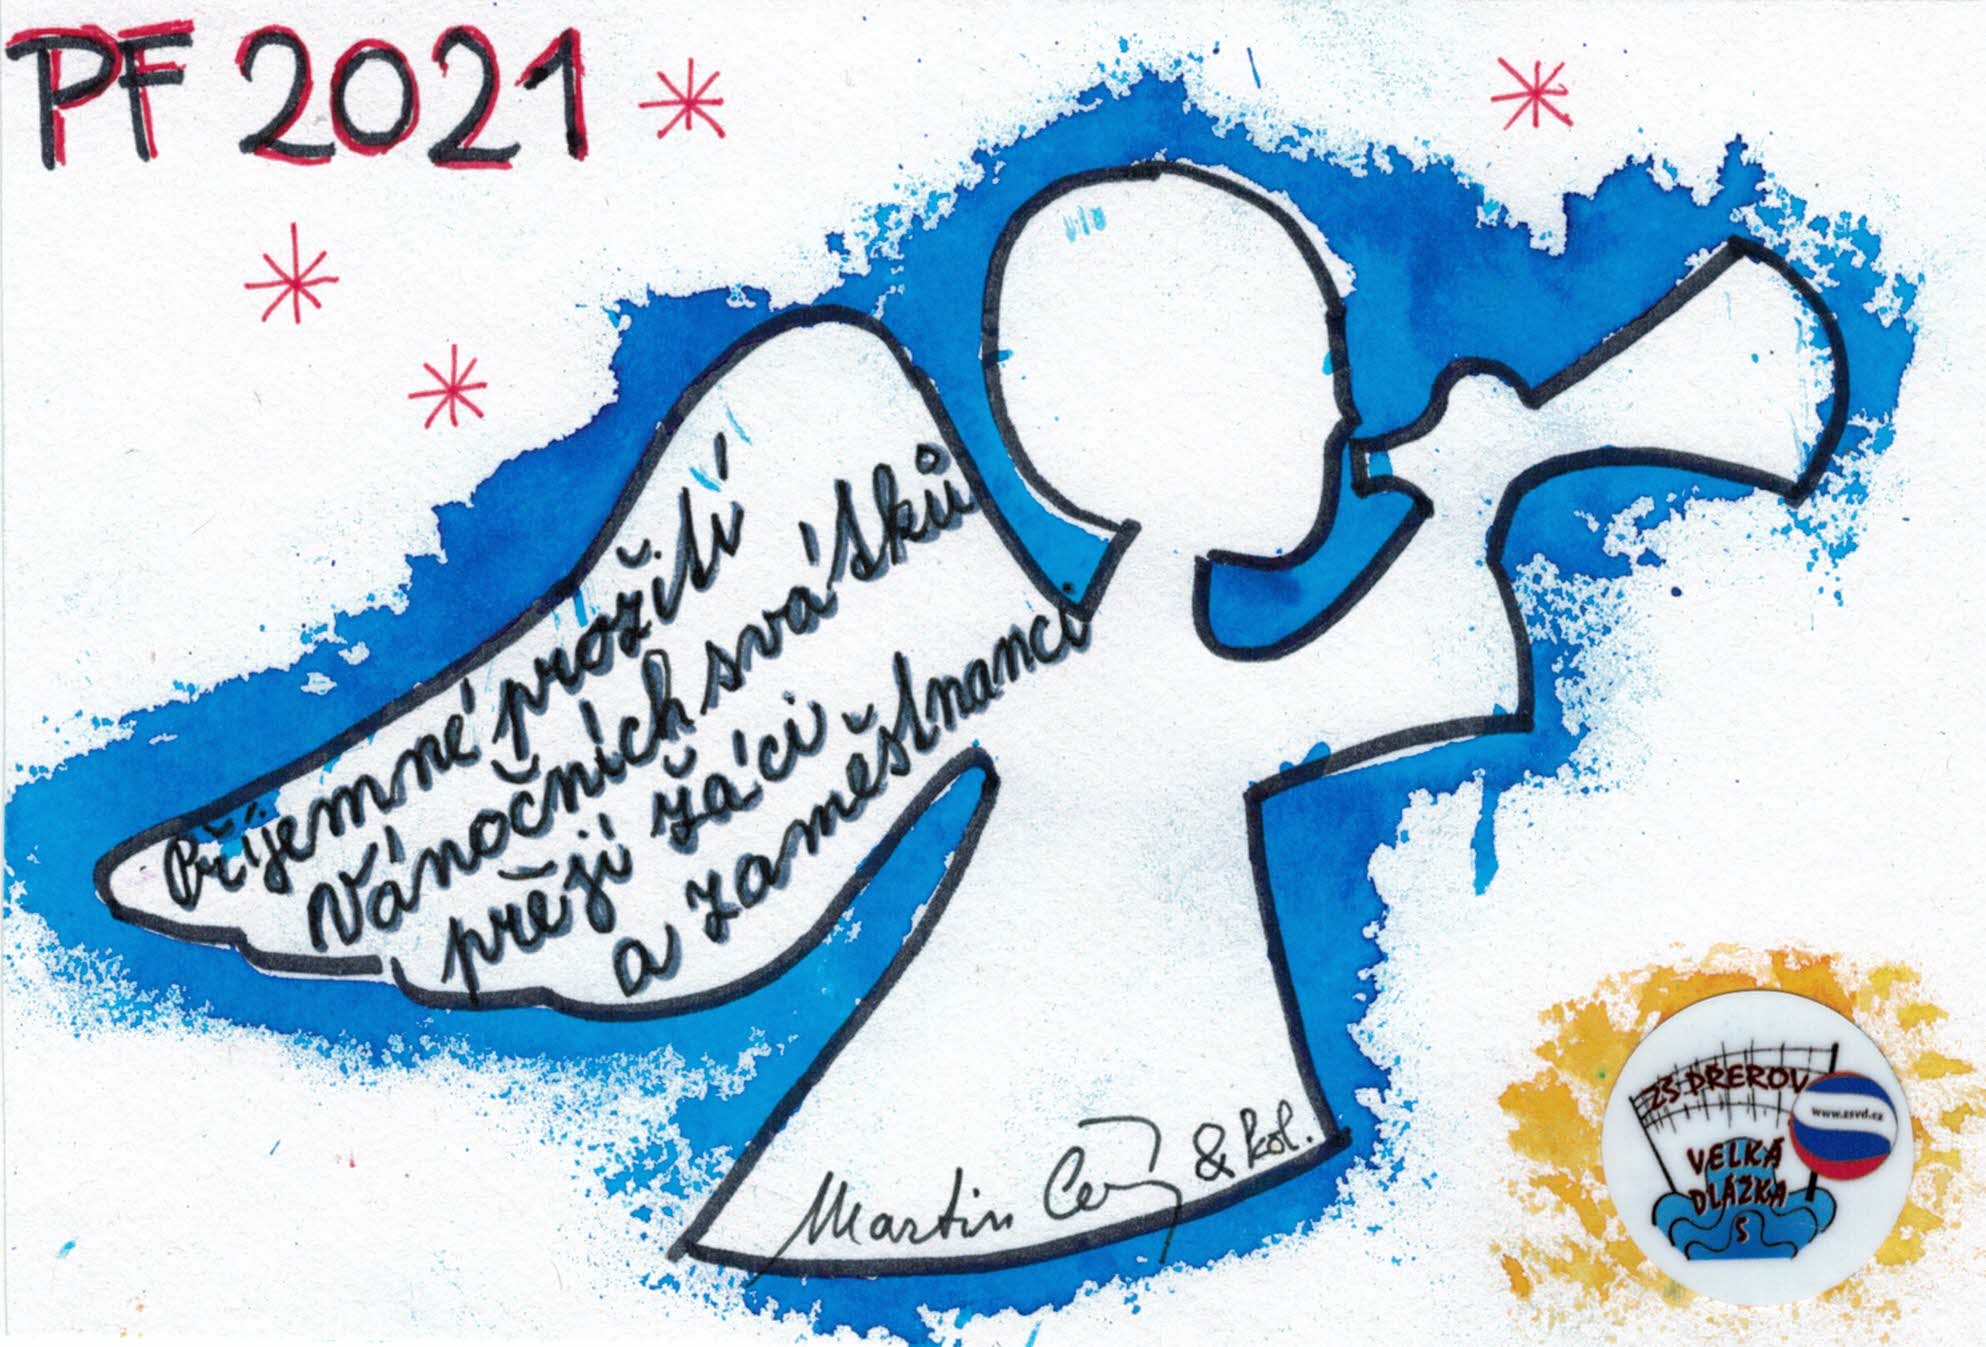 PF 2021
Příjemné prožití
Vánočních svátků
přejí žáci
a zaměstnanci
Martin & kol.
ZŠ PŘEROV
www.zsvd.cz
VELKÁ
DLÁŽKA
5